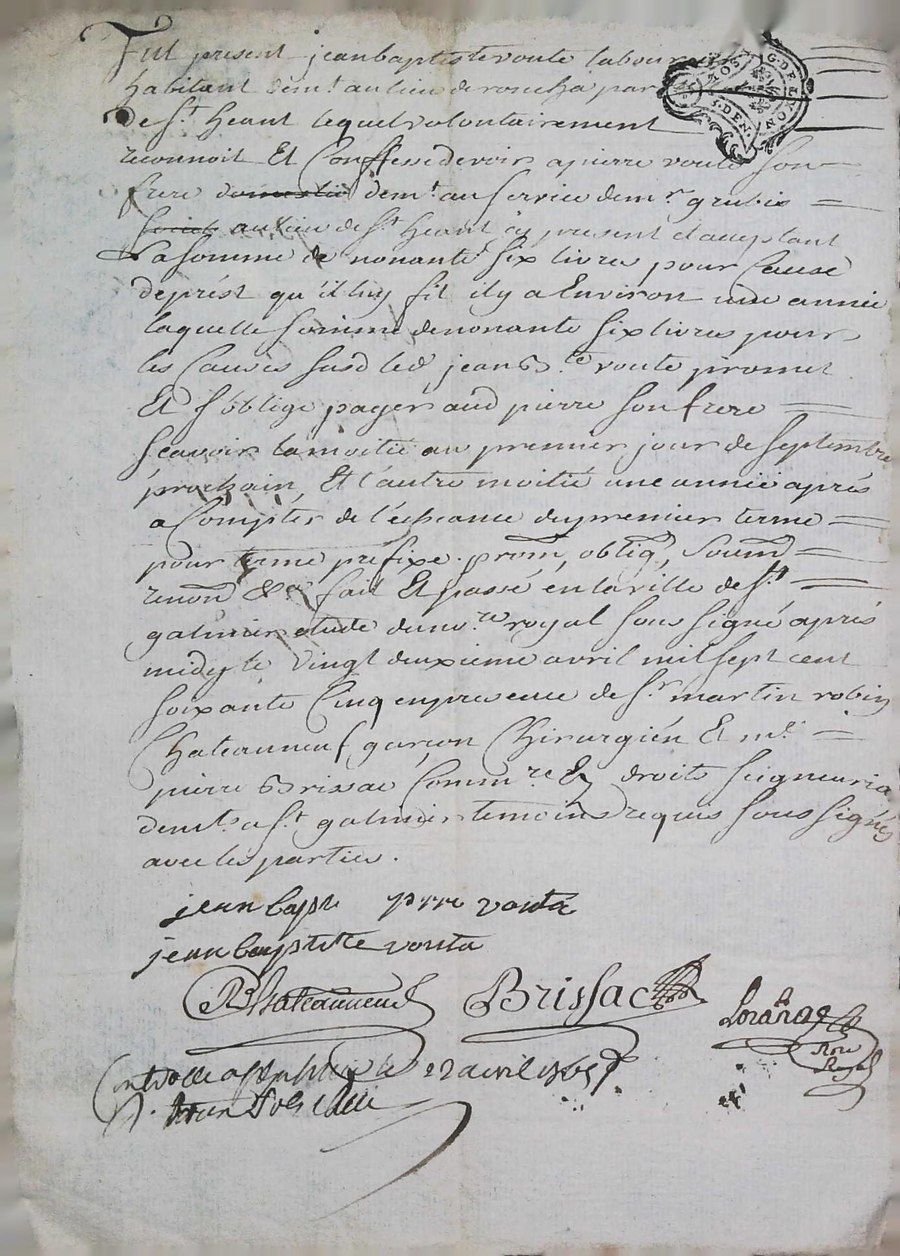 Fut present jean baptiste voute labour
habitant demt. au lieu de roncha par
de St. heant lequel volontairement
reconnoit Et Confesse devoir a pierre voute son
frere domestic demt. au service de mr. grubis
au lieu de St. heant cy present et acceptant
La somme de nonante six livres pour Cause
de prést qu'il luy fit il y a Environ une année
laquelle somme de nonante six livres pour
les Causes susd led, jean b.te voute promet
Et s'oblige payer aud pierre son frere
scavoir la moitié au premier jour de septembre
prochain, Et l'autre moitié une année aprés
a Compter de l'echeance du premier terme
pour terme prefixe. prom, obliq, soum
renon &c. fait Et passé en la ville de St.
galmier etude du no.re royal sous signé aprés
midy le vingt deuxieme avril mil sept cent
soixante Cinq en presence de Sr. martin robin
Chateauneuf garcon Chirurgién Et mr.
pierre Brissac Comm.re Ez droits seigneuria
demt. a St. galmier temoins requis sous signés
avec les parties.
jean bapt pierre vouta
jean baptitte vouta
R. Chateauneuf Brissac
Royal
Controllé a St le 22 avril 1765
G. DE LYON